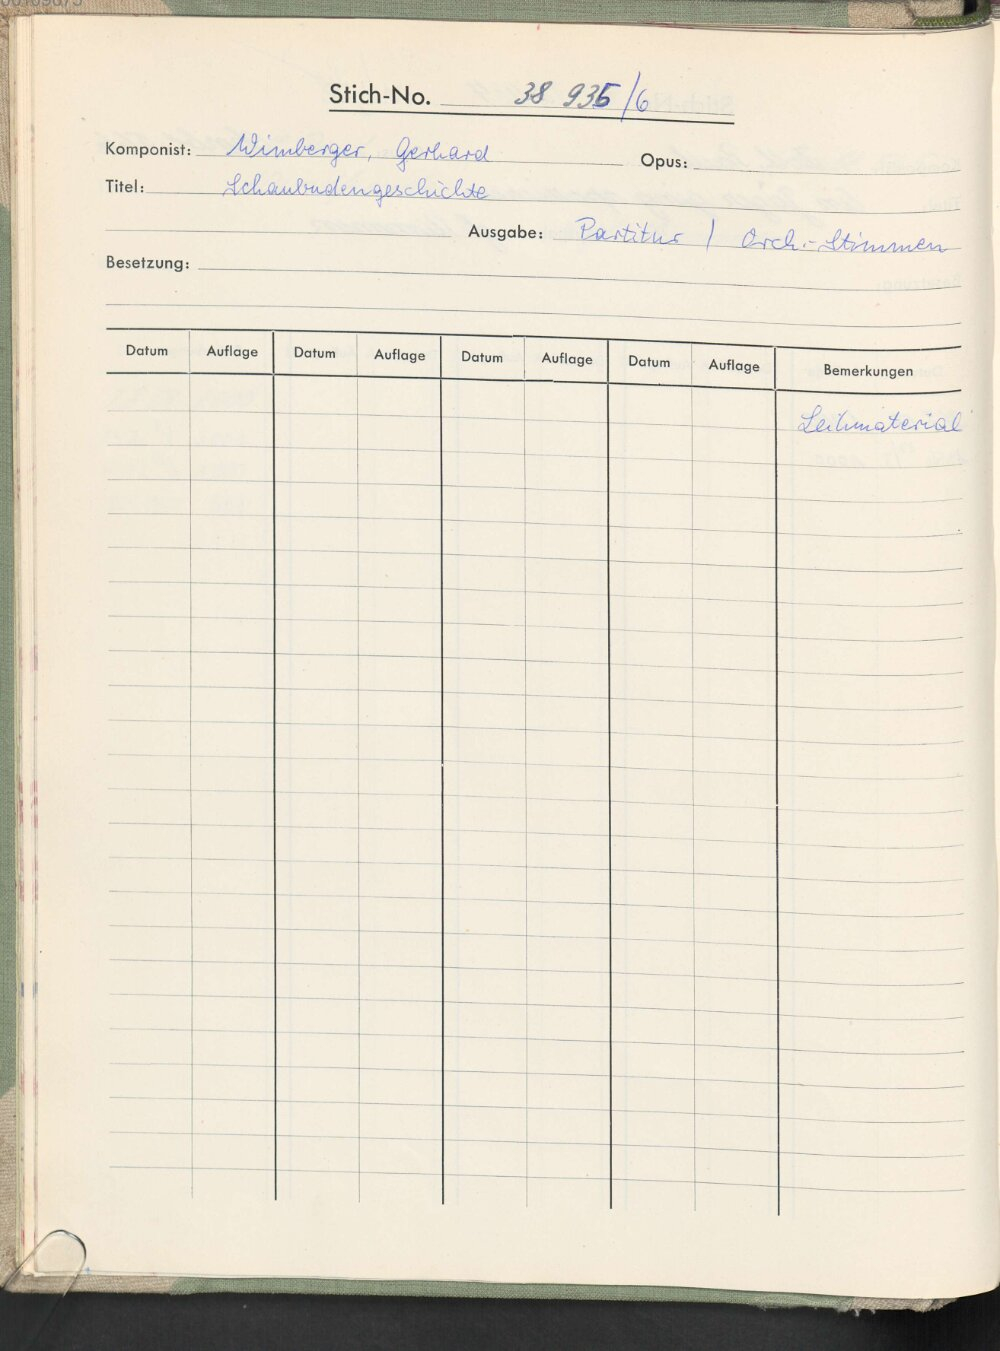 Stich-No. 38 935/6
Komponist: Wimberger, Gerhard Opus:
Titel: Schaubudengeschichte
Ausgabe: Partitur / Orch.-Stimmen
Besetzung:
Datum Auflage Datum Auflage Datum Auflage Datum Auflage Bemerkungen
Leihmaterial